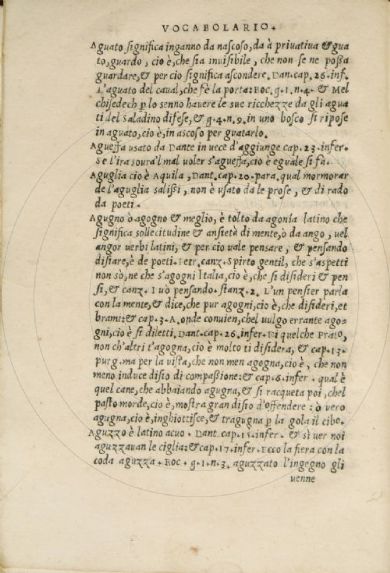 VOCABOLARIO.
Aguato significa inganno da nascoso, da à privativa & gua
to, guardo, cio è, che sia invisibile, che non se ne possa
guardare, & per cio significa ascondere. Dan. cap. 26. inf.
L'aguato del caual, che fè la porta: Boc. g. 1. n. 4. & Mel
chisedech p lo senno havere le sue ricchezze da gli agua
ti del Saladino difese, & g. 4. n. 9. in uno bosco si ripose
in aguato, cio è, in ascoso per guatarlo.
Agueffa usato da Dante in uece d'aggiunge cap. 23. infer.
se l'ira soura'l mal voler s'agueffa, cio è eguale si fa.
Aguglia cio è Aquila, Dant. cap. 20. para. qual mormorar
de l'aguglia salissi, non è usato da le prose, & di rado
da poeti.
Agugno ò agogno & meglio, è tolto da agonia latino che
significa sollecitudine & ansietà di mente, ò da ango, uel
angor uerbi latini, & per cio vale pensare, & pensando
disiare, è de poeti. Petr. canz. Spirto gentil, che s'aspetti
non sò, ne che s'agogni Italia, cio è, che si disideri & pen
si, & canz. I uò pensando. stanz. 2. L'un pensier parla
con la mente, & dice, che pur agogni, cio è, che disideri, et
brami: & cap. 3. A. onde convien, chel uulgo errante ago
gni, cio è si diletti. Dant. cap. 26. infer. Di quelche Prato,
non ch'altri t'agogna, cio è molto ti disidera, & cap. 13.
purg. ma per la vista, che non men agogna, cio è, che non
meno induce disio di compassione: & cap. 6. infer. qual è
quel cane, che abbaiando agugna, & si racqueta poi, chel
pasto morde, cio è, mostra gran disio d'offendere: ò vero
agugna, cio è, inghiottisce, & tragugna p la gola il cibo.
Aguzzo è latino acuo. Dant. cap. 15. infer. & sì uer noi
aguzzauan le ciglia: & cap. 17. infer. Ecco la fiera con la
coda aguzza. Boc. g. 1. n. 3. aguzzato l'ingegno gli
uenne